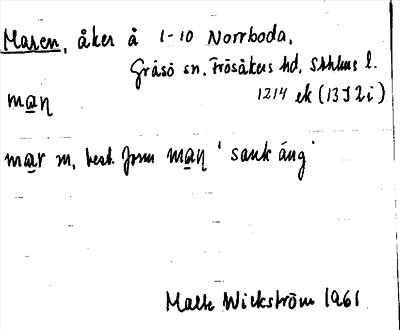 Maren, åker å 1-10 Norrboda,
Gräsö sn. Frösåkers hd, Sthlms l.
man̥ 1214 ek (13J2i)
mar m, best. form man̥ 'sank äng'
Malte Wickström 1961